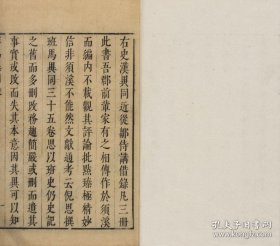 右史漢異同近從鄒侍講借錄凡三冊
此書吾鄉前輩家有之相傳作於須溪
而編內不載觀其評論批點臻極精妙
信非須溪不能然文獻通考云倪思撰
班馬異同三十五卷思以班史仍史記
之舊而多刪改務趨簡嚴或刪而遺其
事實或改而失其本意因其異可以知